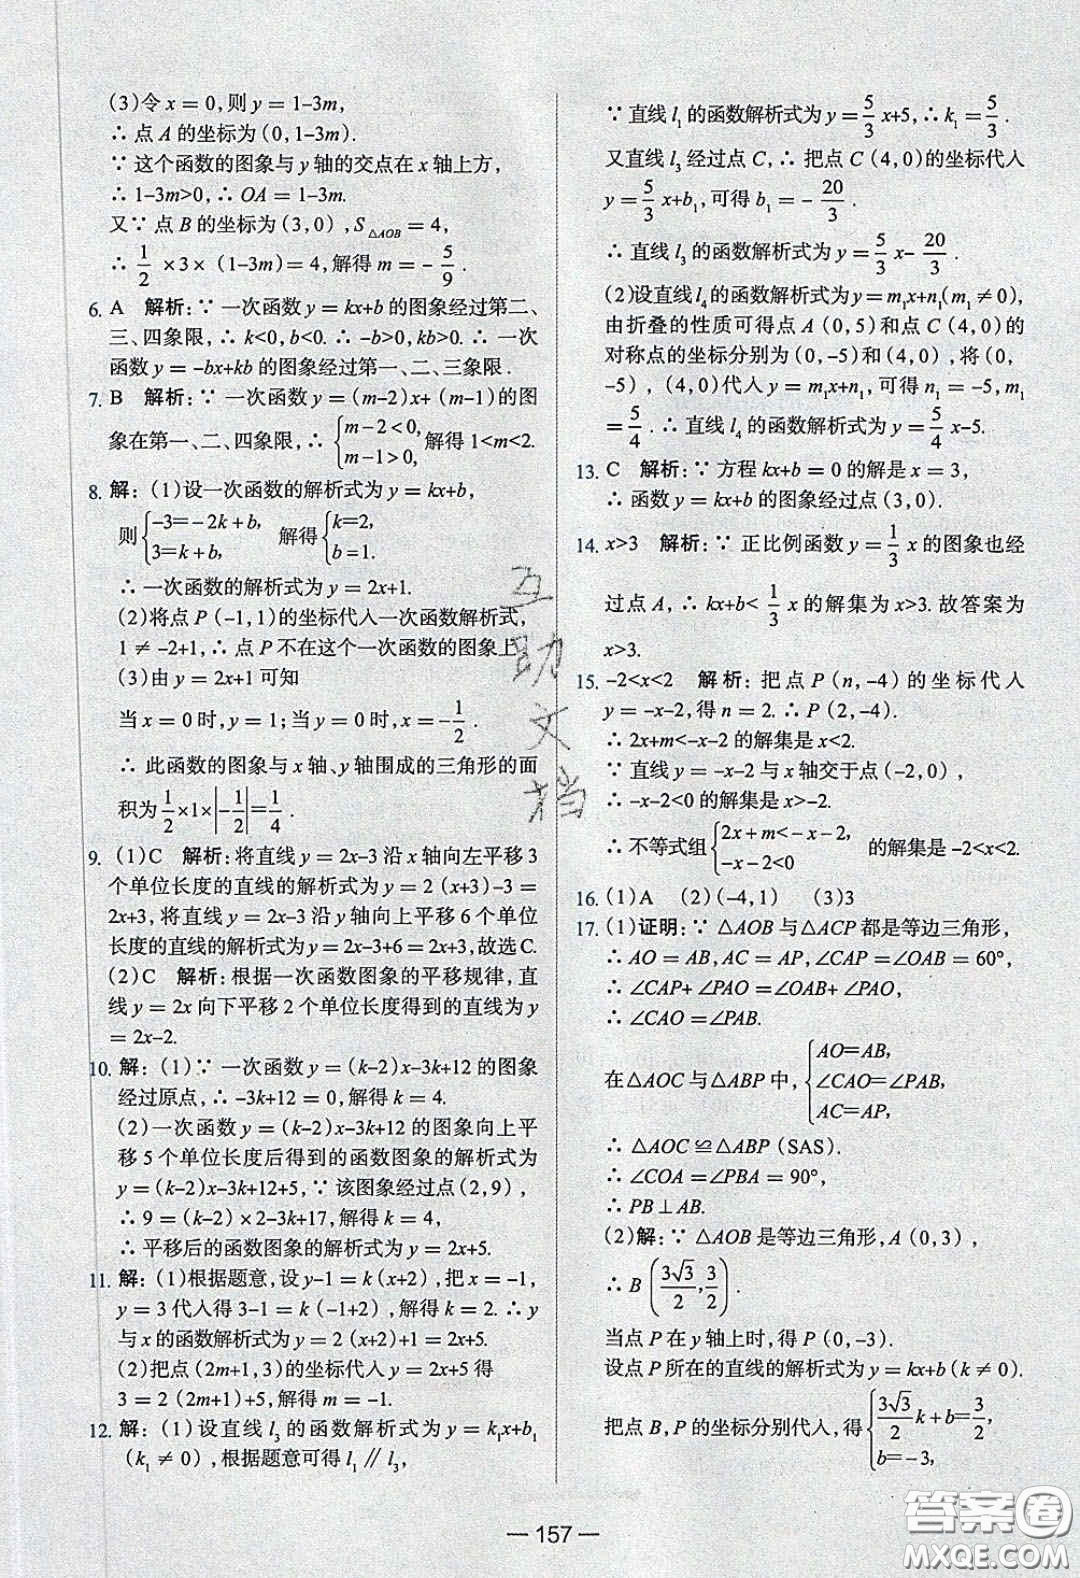 (3)令 x = 0,则 y = 1-3m,
∴ 点 A 的坐标为 (0,1-3m).
∵ 这个函数的图象与 y 轴的交点在 x 轴上方,
∴ 1-3m>0,∴ OA = 1-3m.
又∵ 点 B 的坐标为 (3,0),S△AOB = 4,
∴ 1/2 ×3× (1-3m)= 4,解得 m = - 5/9 .
6. A 解析:∵ 一次函数 y = kx+b 的图象经过第二、
三、四象限,∴ k<0,b<0. ∴ -b>0,kb>0. ∴ 一次
函数 y = -bx+kb 的图象经过第一、二、三象限 .
7. B 解析:∵ 一次函数 y = (m-2)x+ (m-1)的图
象在第一、二、四象限,∴ {m-2<0, m-1>0, 解得 1<m<2.
8. 解:(1)设一次函数的解析式为 y = kx+b,
则{-3=-2k+b, 3=k+b, 解得{k=2, b=1.
∴ 一次函数的解析式为 y = 2x+1.
(2)将点 P (-1,1)的坐标代入一次函数解析式,
1 ≠ -2+1,∴ 点 P 不在这个一次函数的图象上.
(3)由 y = 2x+1 可知
当 x = 0 时,y = 1;当 y = 0 时,x = - 1/2 .
∴ 此函数的图象与 x 轴、y 轴围成的三角形的面
积为 1/2 ×1× |-1/2| = 1/4 .
9. (1)C 解析:将直线 y = 2x-3 沿 x 轴向左平移 3
个单位长度的直线的解析式为 y = 2 (x+3)-3 =
2x+3,将直线 y = 2x-3 沿 y 轴向上平移 6 个单位
长度的直线的解析式为 y = 2x-3+6 = 2x+3,故选C.
(2)C 解析:根据一次函数图象的平移规律,直
线 y = 2x 向下平移 2 个单位长度得到的直线为 y
= 2x-2.
10. 解:(1)∵ 一次函数 y = (k-2)x-3k+12 的图象
经过原点,∴ -3k+12 = 0,解得 k = 4.
(2)一次函数 y = (k-2)x-3k+12 的图象向上平
移 5 个单位长度后得到的函数图象的解析式为
y = (k-2)x-3k+12+5,∵ 该图象经过点 (2,9),
∴ 9 = (k-2) ×2-3k+17,解得 k = 4,
∴ 平移后的函数图象的解析式为 y = 2x+5.
11. 解:(1)根据题意,设 y-1 = k (x+2),把 x = -1,
y = 3 代入得 3-1 = k (-1+2),解得 k = 2. ∴ y
与 x 的函数解析式为 y = 2 (x+2)+1 = 2x+5.
(2)把点 (2m+1,3)的坐标代入 y = 2x+5 得
3 = 2 (2m+1)+5,解得 m = -1.
12. 解:(1)设直线 l3 的函数解析式为 y = k1x+b1
(k1 ≠ 0),根据题意可得 l1 ∥ l3,
∵ 直线 l1 的函数解析式为 y = 5/3 x+5,∴ k1 = 5/3 .
又直线 l3 经过点 C,∴ 把点 C (4,0)的坐标代入
y = 5/3 x+b1,可得 b1 = - 20/3 .
∴ 直线 l3 的函数解析式为 y = 5/3 x- 20/3 .
(2)设直线 l4 的函数解析式为 y = m1x+n1(m1 ≠ 0),
由折叠的性质可得点 A (0,5)和点 C (4,0)的
对称点的坐标分别为 (0,-5)和 (4,0),将 (0,
-5),(4,0)代入 y = m1x+n1,可得 n1 = -5,m1
= 5/4 . ∴ 直线 l4 的函数解析式为 y = 5/4 x-5.
13. C 解析:∵ 方程 kx+b = 0 的解是 x = 3,
∴ 函数 y = kx+b 的图象经过点 (3,0).
14. x>3 解析:∵ 正比例函数 y = 1/3 x 的图象也经
过点 A,∴ kx+b< 1/3 x 的解集为 x>3. 故答案为
x>3.
15. -2<x<2 解析:把点 P (n,-4) 的坐标代入
y = -x-2,得 n = 2. ∴ P (2,-4).
∴ 2x+m<-x-2 的解集是 x<2.
∵ 直线 y = -x-2 与 x 轴交于点 (-2,0),
∴ -x-2<0 的解集是 x>-2.
∴ 不等式组{2x+m<-x-2, -x-2<0 的解集是 -2<x<2.
16. (1)A (2)(-4,1) (3)3
17. (1)证明:∵ △AOB 与△ACP 都是等边三角形,
∴ AO = AB,AC = AP,∠CAP = ∠OAB = 60°,
∴ ∠CAP+ ∠PAO = ∠OAB+ ∠PAO,
∴ ∠CAO =∠PAB.
在△AOC 与△ABP 中,{AO=AB, ∠CAO=∠PAB, AC=AP,
∴ △AOC ≌△ABP (SAS).
∴ ∠COA = ∠PBA = 90°,
∴ PB⊥AB.
(2)解:∵ △AOB 是等边三角形,A (0,3),
∴ B (3√3/2, 3/2).
当点 P 在 y 轴上时,得 P (0,-3).
设点 P 所在的直线的解析式为 y = kx+b (k ≠ 0).
把点 B,P 的坐标分别代入,得{3√3/2 k+b=3/2, b=-3,
— 157 —
互助文档
答案圈
MXQE.COM